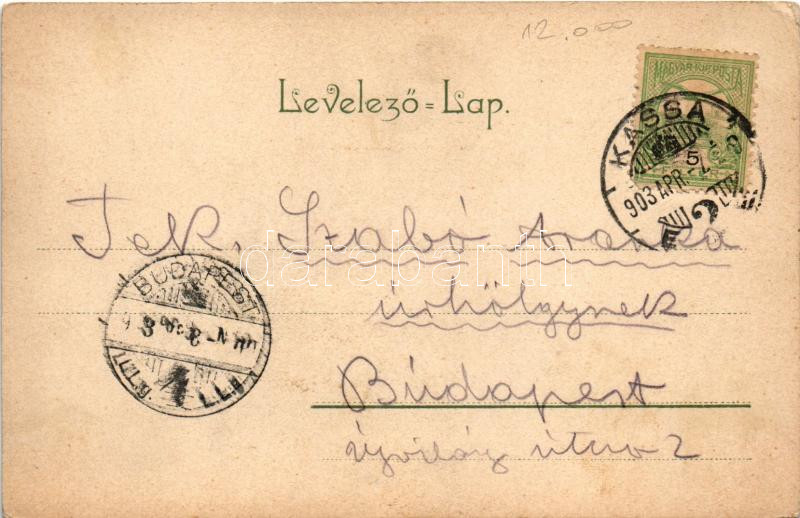 12.000
MAGYAR KIR. POSTA
Levelező=Lap.
KASSA
5
903 APR.-2
Tek. Szabó Aranka
darabanth.com
BUDAPEST
úrhölgynek
Budapest
újvilág útca 2